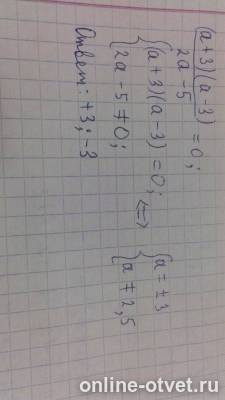 (a+3)(a-3)
2a-5
=0;
{(a+3)(a-3)=0; <=> {a=±3
{2a-5≠0; {a≠2,5
Ответ: +3; -3
online-otvet.ru